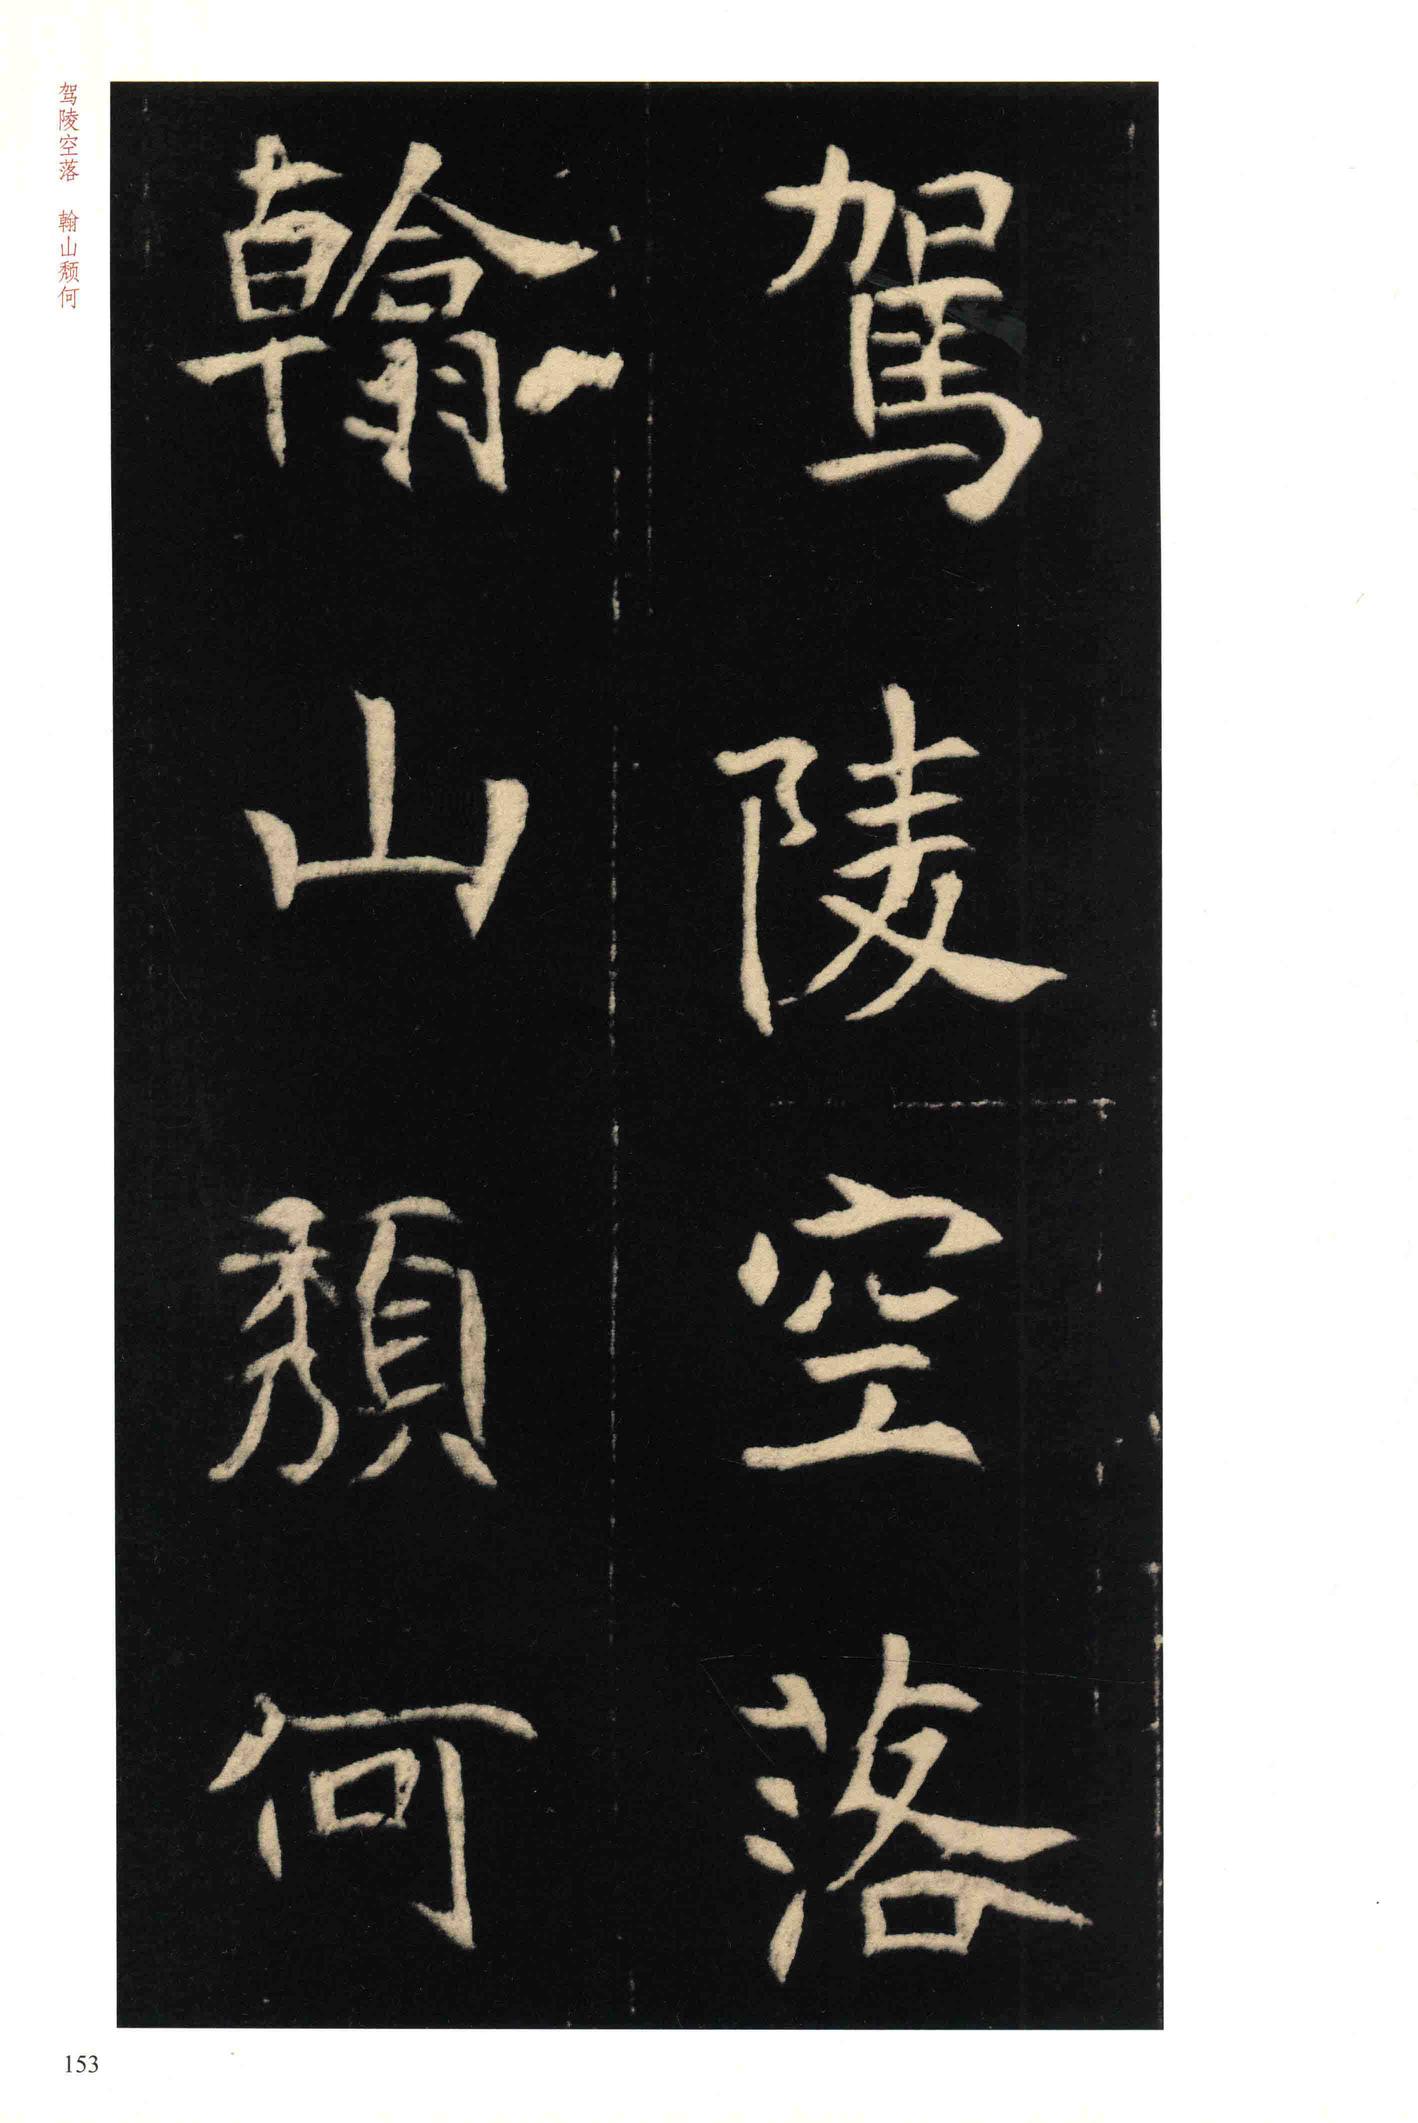 駕陵空落
翰山頹何
驾陵空落 翰山颓何
153